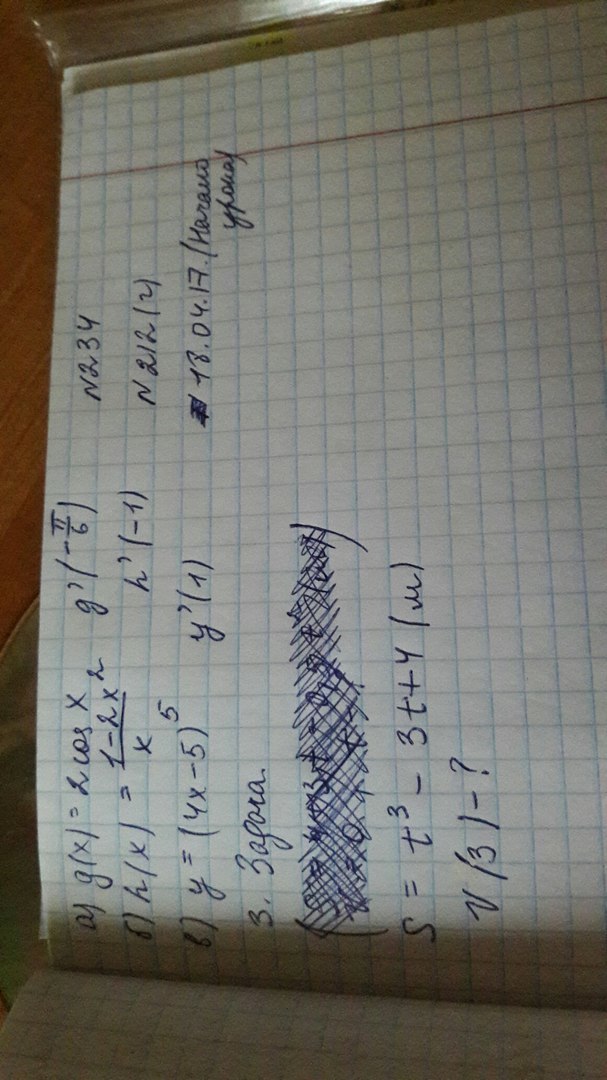 а) g(x) = 2 cos x g'(-π/6) N234
б) h(x) = (1-2x²)/x h'(-1) N212(г)
в) y = (4x-5)⁵ y'(1) 18.04.17. (Начало урока)
3. Задача.
S = t³ - 3t + 4 (м)
V(3) - ?